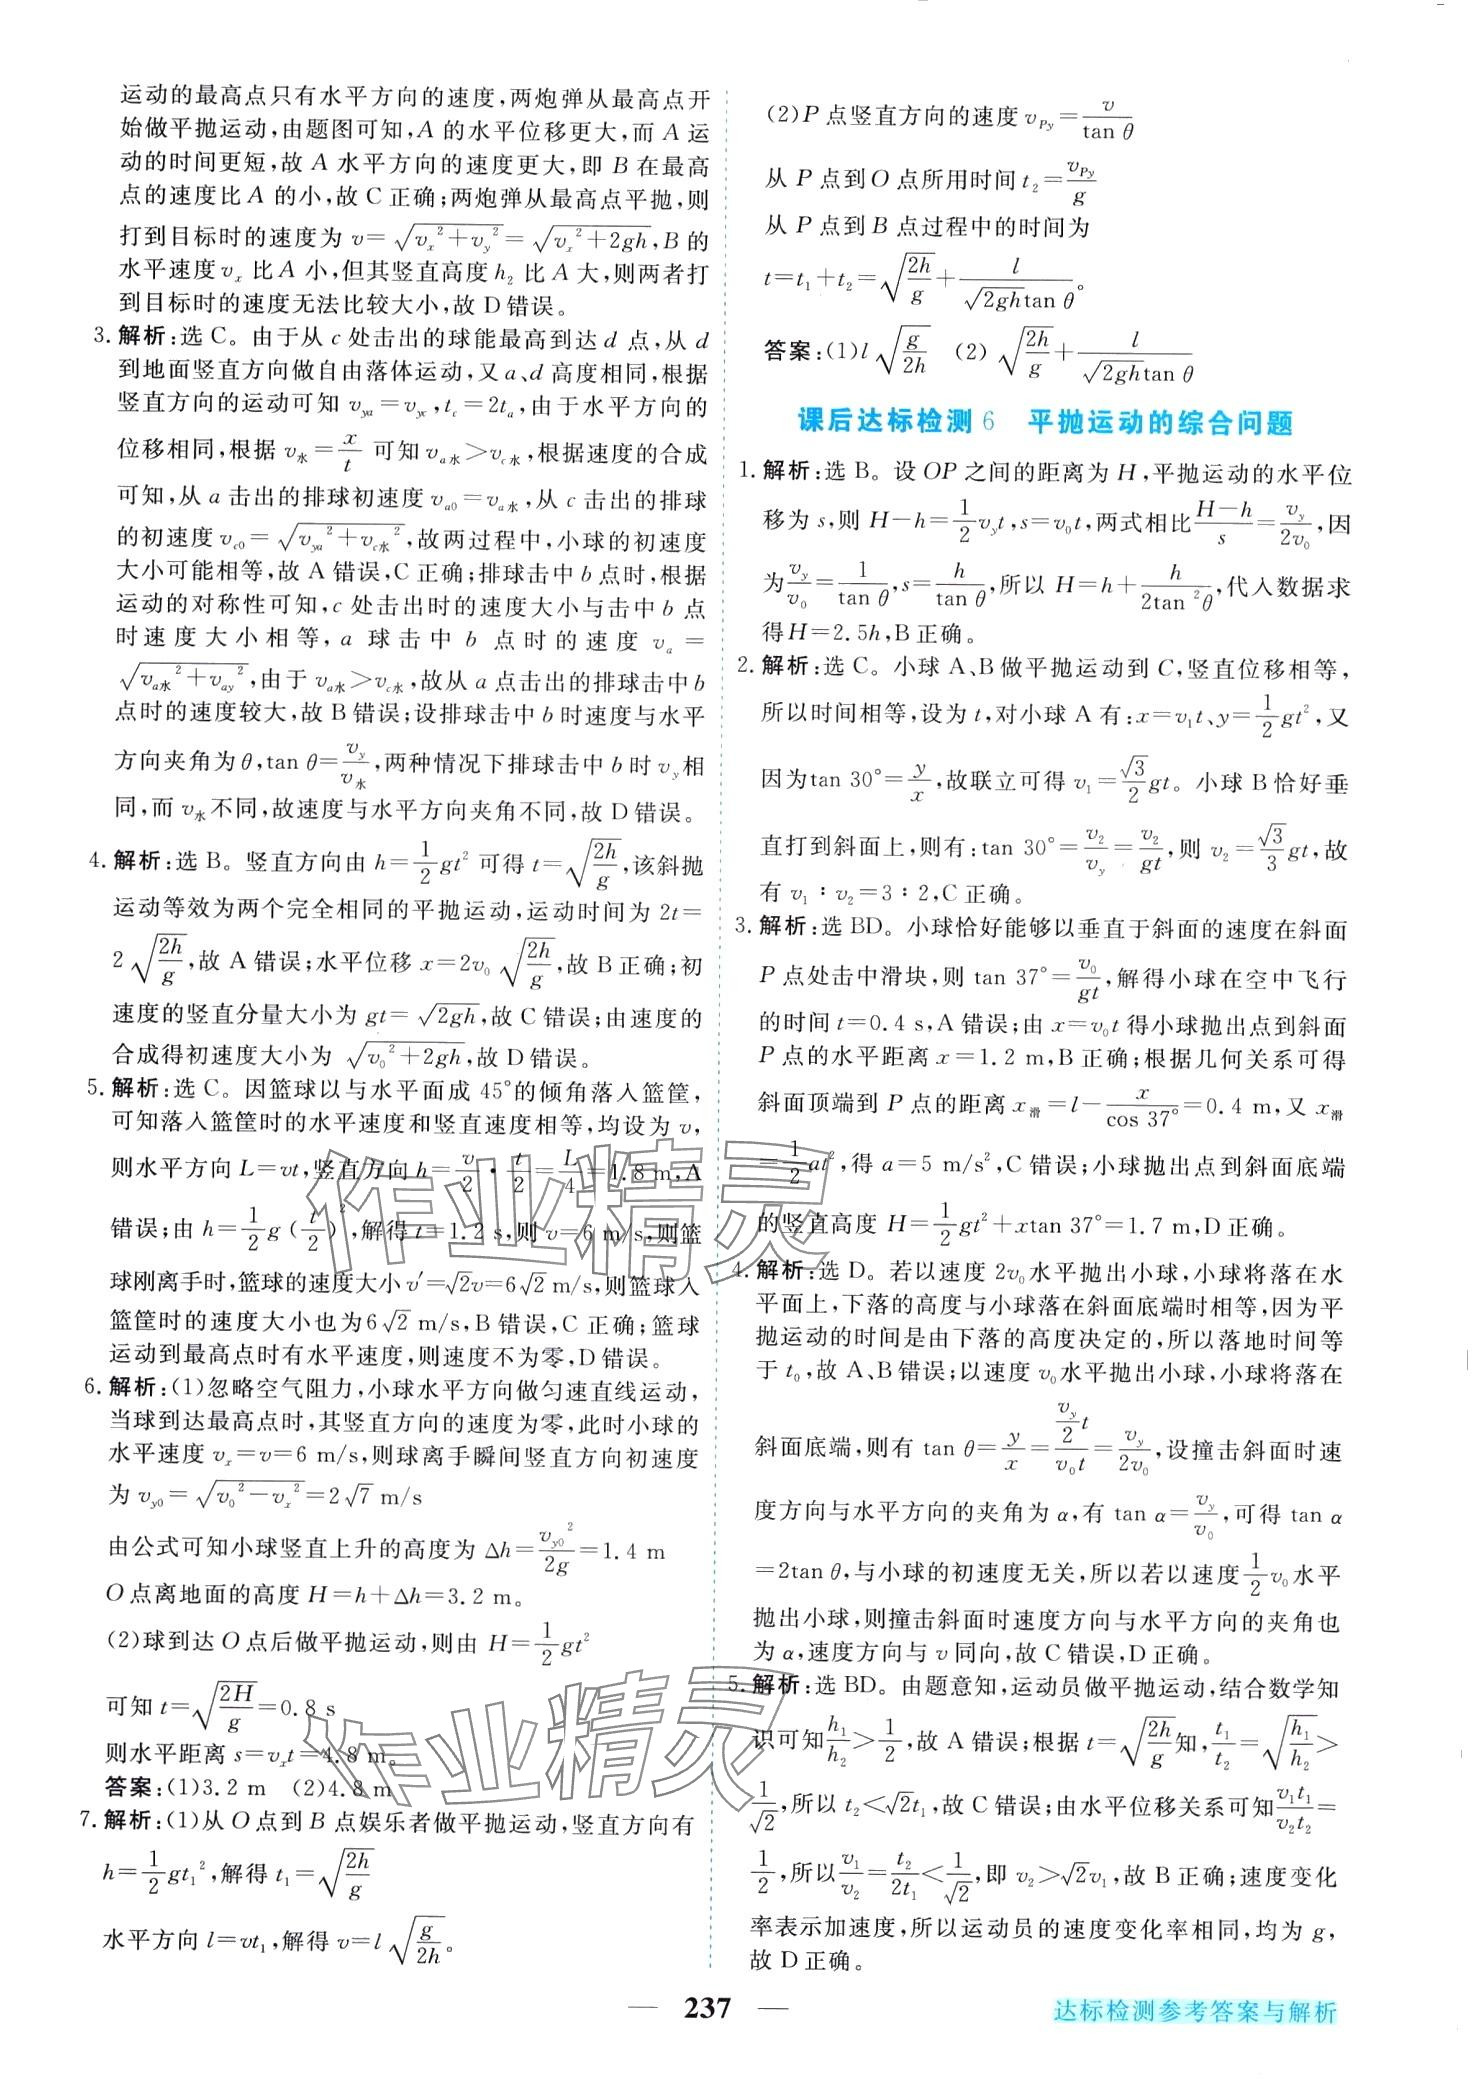 运动的最高点只有水平方向的速度,两炮弹从最高点开
始做平抛运动,由题图可知,A 的水平位移更大,而 A 运
动的时间更短,故 A 水平方向的速度更大,即 B 在最高
点的速度比 A 的小,故 C 正确;两炮弹从最高点平抛,则
打到目标时的速度为 v=√(vₓ²+v_y²)=√(vₓ²+2gh),B 的
水平速度 vₓ 比 A 小,但其竖直高度 h₂ 比 A 大,则两者打
到目标时的速度无法比较大小,故 D 错误。
3. 解析:选 C。由于从 c 处击出的球能最高到达 d 点,从 d
到地面竖直方向做自由落体运动,又 a、d 高度相同,根据
竖直方向的运动可知 v_ya=v_yc,t_c=2t_a,由于水平方向的
位移相同,根据 v水=x/t 可知 v_a水>v_c水,根据速度的合成
可知,从 a 击出的排球初速度 v_a0=v_a水,从 c 击出的排球
的初速度 v_c0=√(v_ya²+v_c水²),故两过程中,小球的初速度
大小可能相等,故 A 错误,C 正确;排球击中 b 点时,根据
运动的对称性可知,c 处击出时的速度大小与击中 b 点
时速度大小相等,a 球击中 b 点时的速度 v_a=
√(v_a水²+v_ay²),由于 v_a水>v_c水,故从 a 点击出的排球击中 b
点时的速度较大,故 B 错误;设排球击中 b 时速度与水平
方向夹角为 θ,tan θ=v_y/v水,两种情况下排球击中 b 时 v_y 相
同,而 v水 不同,故速度与水平方向夹角不同,故 D 错误。
4. 解析:选 B。竖直方向由 h=1/2gt² 可得 t=√(2h/g),该斜抛
运动等效为两个完全相同的平抛运动,运动时间为 2t=
2√(2h/g),故 A 错误;水平位移 x=2v₀√(2h/g),故 B 正确;初
速度的竖直分量大小为 gt=√(2gh),故 C 错误;由速度的
合成得初速度大小为 √(v₀²+2gh),故 D 错误。
5. 解析:选 C。因篮球以与水平面成 45°的倾角落入篮筐,
可知落入篮筐时的水平速度和竖直速度相等,均设为 v,
则水平方向 L=vt,竖直方向 h=v/2·t/2=L/4=1.8 m,A
错误;由 h=1/2g(t/2)²,解得 t=1.2 s,则 v=6 m/s,则篮
球刚离手时,篮球的速度大小 v′=√2v=6√2 m/s,则篮球入
篮筐时的速度大小也为 6√2 m/s,B 错误,C 正确;篮球
运动到最高点时有水平速度,则速度不为零,D 错误。
6. 解析:(1)忽略空气阻力,小球水平方向做匀速直线运动,
当球到达最高点时,其竖直方向的速度为零,此时小球的
水平速度 vₓ=v=6 m/s,则球离手瞬间竖直方向初速度
为 v_y0=√(v₀²−vₓ²)=2√7 m/s
由公式可知小球竖直上升的高度为 Δh=v_y0²/2g=1.4 m
O 点离地面的高度 H=h+Δh=3.2 m。
(2)球到达 O 点后做平抛运动,则由 H=1/2gt²
可知 t=√(2H/g)=0.8 s
则水平距离 s=vₓt=4.8 m。
答案:(1)3.2 m (2)4.8 m
7. 解析:(1)从 O 点到 B 点娱乐者做平抛运动,竖直方向有
h=1/2gt₁²,解得 t₁=√(2h/g)
水平方向 l=vt₁,解得 v=l√(g/2h)。
(2)P 点竖直方向的速度 v_Py=v/tan θ
从 P 点到 O 点所用时间 t₂=v_Py/g
从 P 点到 B 点过程中的时间为
t=t₁+t₂=√(2h/g)+l/(√(2gh)tan θ)。
答案:(1)l√(g/2h) (2)√(2h/g)+l/(√(2gh)tan θ)
课后达标检测 6 平抛运动的综合问题
1. 解析:选 B。设 OP 之间的距离为 H,平抛运动的水平位
移为 s,则 H−h=1/2v_yt,s=v₀t,两式相比(H−h)/s=v_y/2v₀,因
为v_y/v₀=1/tan θ,s=h/tan θ,所以 H=h+h/(2tan²θ),代入数据求
得 H=2.5h,B 正确。
2. 解析:选 C。小球 A、B 做平抛运动到 C,竖直位移相等,
所以时间相等,设为 t,对小球 A 有:x=v₁t、y=1/2gt²,又
因为tan 30°=y/x,故联立可得 v₁=√3/2gt。小球 B 恰好垂
直打到斜面上,则有:tan 30°=v₂/v_y=v₂/gt,则 v₂=√3/3gt,故
有 v₁∶v₂=3∶2,C 正确。
3. 解析:选 BD。小球恰好能够以垂直于斜面的速度在斜面
P 点处击中滑块,则 tan 37°=v₀/gt,解得小球在空中飞行
的时间 t=0.4 s,A 错误;由 x=v₀t 得小球抛出点到斜面
P 点的水平距离 x=1.2 m,B 正确;根据几何关系可得
斜面顶端到 P 点的距离 x滑=l−x/cos 37°=0.4 m,又 x滑
=1/2at²,得 a=5 m/s²,C 错误;小球抛出点到斜面底端
的竖直高度 H=1/2gt²+xtan 37°=1.7 m,D 正确。
4. 解析:选 D。若以速度 2v₀ 水平抛出小球,小球将落在水
平面上,下落的高度与小球落在斜面底端时相等,因为平
抛运动的时间是由下落的高度决定的,所以落地时间等
于 t₀,故 A、B 错误;以速度 v₀ 水平抛出小球,小球将落在
斜面底端,则有 tan θ=y/x=(v_y/2)t/v₀t=v_y/2v₀,设撞击斜面时速
度方向与水平方向的夹角为 α,有 tan α=v_y/v₀,可得 tan α
=2tan θ,与小球的初速度无关,所以若以速度1/2v₀ 水平
抛出小球,则撞击斜面时速度方向与水平方向的夹角也
为 α,速度方向与 v 同向,故 C 错误,D 正确。
5. 解析:选 BD。由题意知,运动员做平抛运动,结合数学知
识可知h₁/h₂>1/2,故 A 错误;根据 t=√(2h/g)知,t₁/t₂=√(h₁/h₂)>
1/√2,所以 t₂<√2t₁,故 C 错误;由水平位移关系可知v₁t₁/v₂t₂=
1/2,所以v₁/v₂=t₂/2t₁<1/√2,即 v₂>√2v₁,故 B 正确;速度变化
率表示加速度,所以运动员的速度变化率相同,均为 g,
故 D 正确。
作业精灵
作业精灵
— 237 —
达标检测参考答案与解析